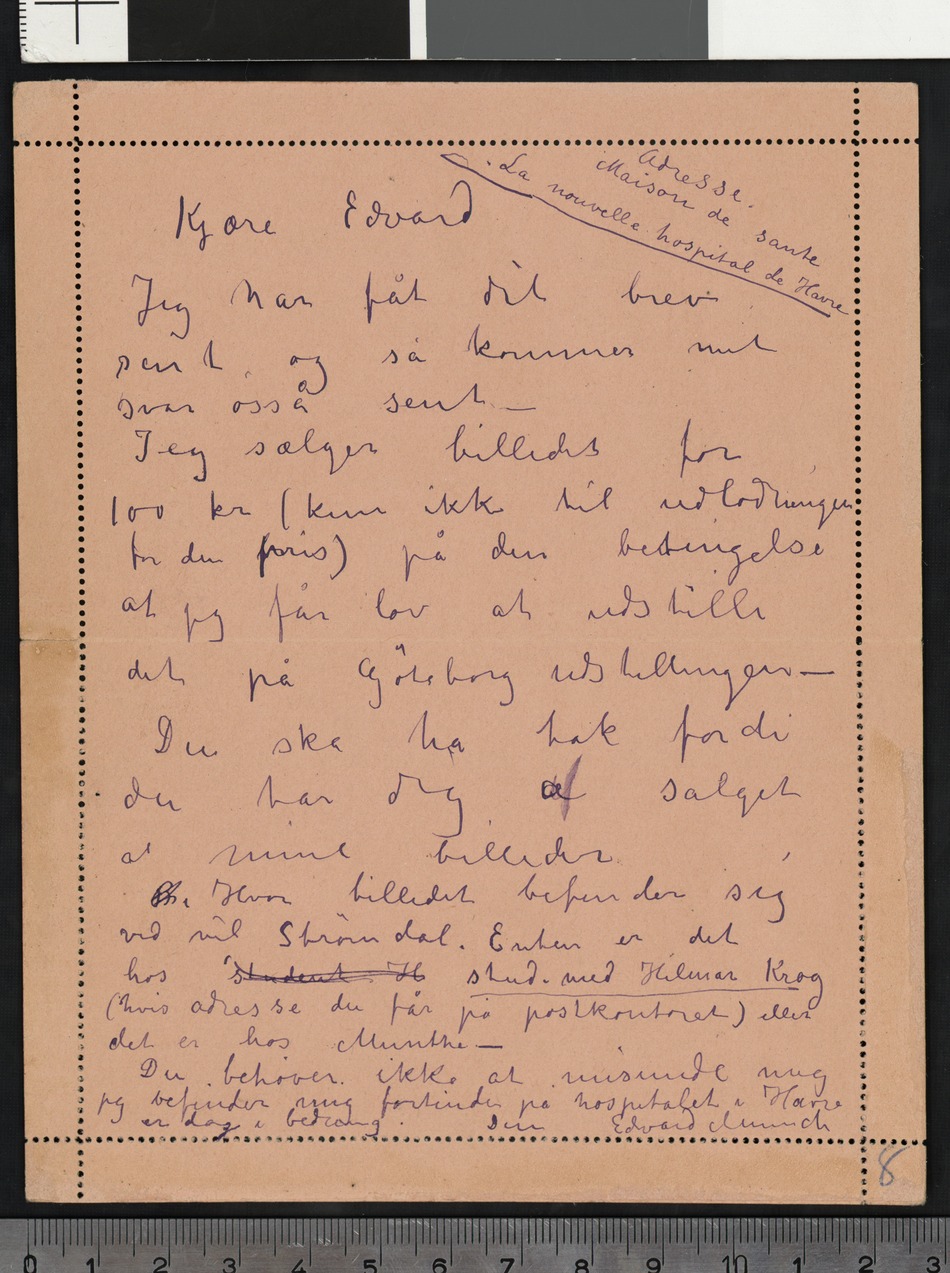 Adresse.
Maison de sante
La nouvelle hospital de Havre
Kjære Edvard
Jeg har fåt dit brev
sent og så kommer mit
svar osså sent —
Jeg sælger billedet for
100 kr (kun ikke til udlodningen
for den pris) på den betingelse
at jeg får lov at udstille
det på Göteborg udstillingen —
Du ska ha tak fordi
du tar dig af salget
af mine billeder
Hvor billedet befinder sig
ved vel Strömdal. Enten er det
hos student H stud. med Hilmar Krog
(hvis adresse du får på postkontoret) eller
det er hos Munthe —
Du behöver ikke at misunde mig
jeg befinder mig fortinden på hospitalet i Havre
er dog i bedring. Din Edvard Munch
8
0 1 2 3 4 5 6 7 8 9 10 1 2 3